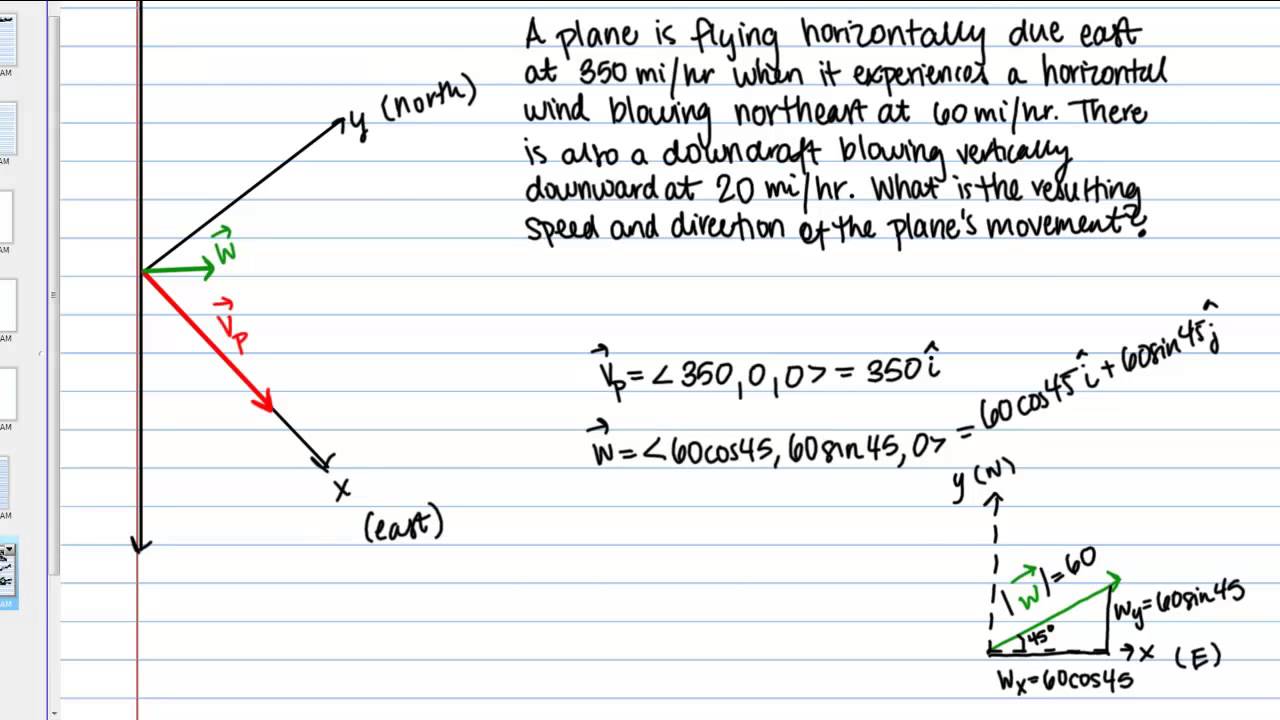 A plane is flying horizontally due east
at 350 mi/hr when it experiences a horizontal
wind blowing northeast at 60 mi/hr. There
is also a downdraft blowing vertically
downward at 20 mi/hr. What is the resulting
speed and direction of the plane's movement?
y (north)
w⃗
V⃗p
x
(east)
V⃗p = <350, 0, 0> = 350î
w⃗ = <60cos45, 60sin45, 0> = 60cos45î + 60sin45ĵ
y (N)
|w⃗| = 60
45°
Wy = 60sin45
x (E)
Wx = 60cos45
AM
AM
AM
AM
AM
AM
AM